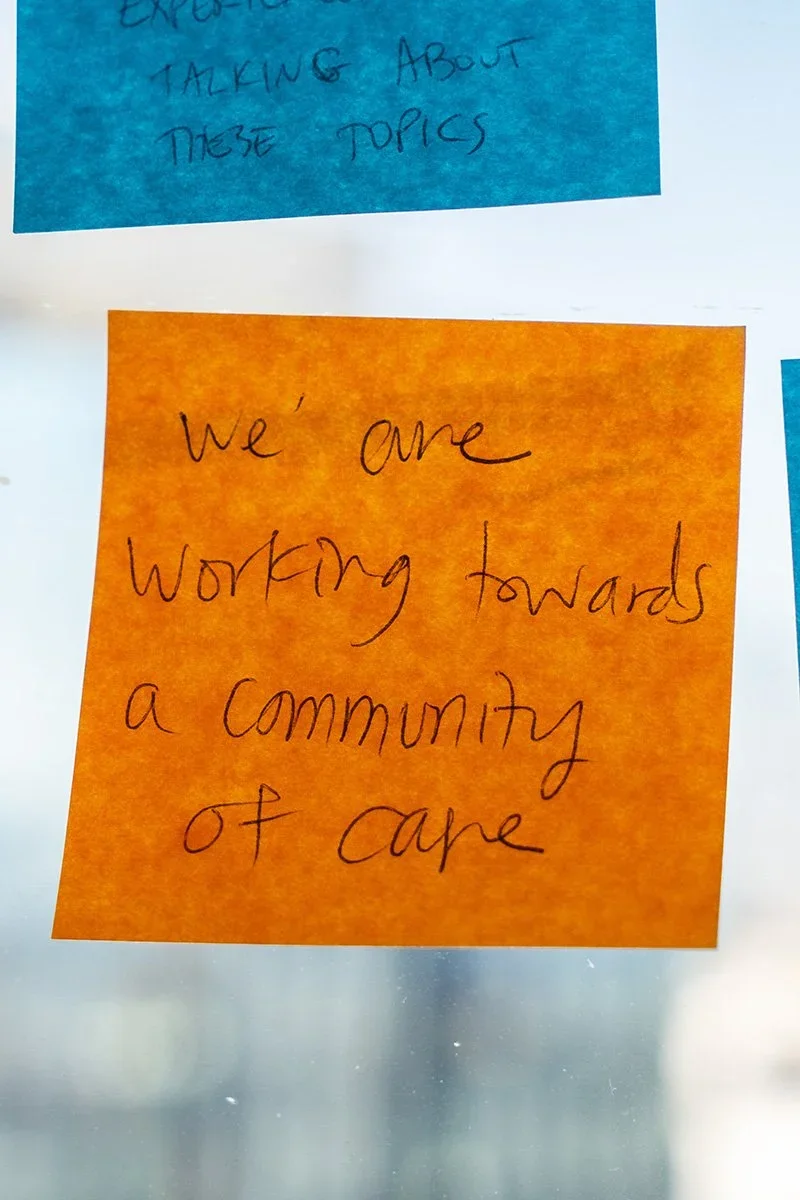 TALKING ABOUT
THESE TOPICS
we' are
working towards
a community
of care